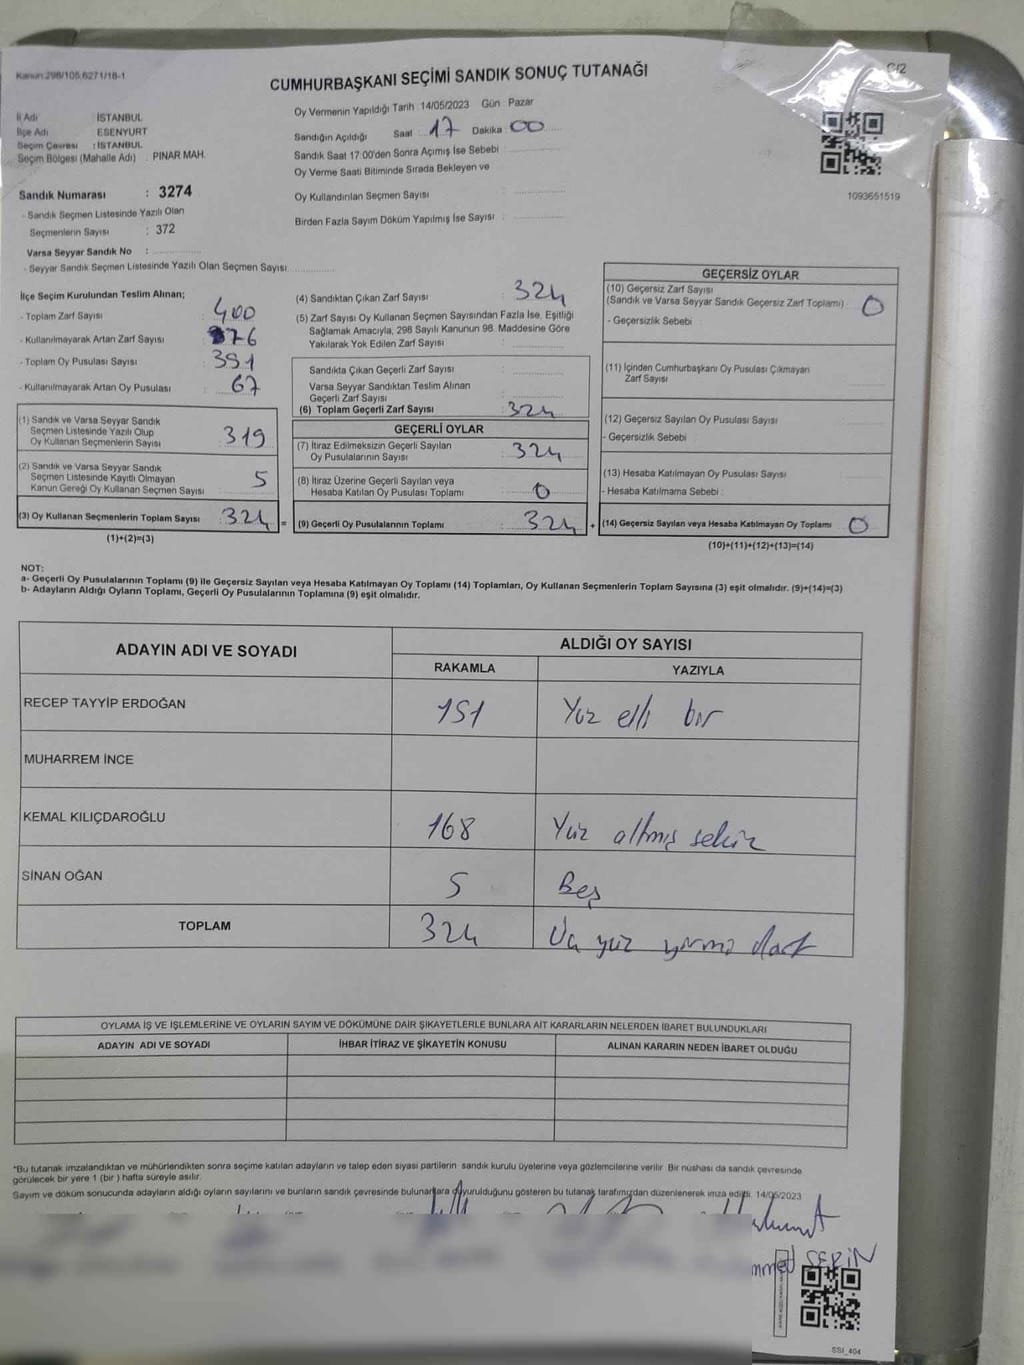 Kanun:298/105,6271/18-1
C/2
CUMHURBAŞKANI SEÇİMİ SANDIK SONUÇ TUTANAĞI
İl Adı : İSTANBUL
İlçe Adı : ESENYURT
Seçim Çevresi : İSTANBUL
Seçim Bölgesi (Mahalle Adı) : PINAR MAH.
Sandık Numarası : 3274
- Sandık Seçmen Listesinde Yazılı Olan
Seçmenlerin Sayısı : 372
Varsa Seyyar Sandık No :
- Seyyar Sandık Seçmen Listesinde Yazılı Olan Seçmen Sayısı
Oy Vermenin Yapıldığı Tarih : 14/05/2023 Gün : Pazar
Sandığın Açıldığı Saat : 17 Dakika : 00
Sandık Saat 17:00'den Sonra Açımış İse Sebebi :
Oy Verme Saati Bitiminde Sırada Bekleyen ve
Oy Kullandırılan Seçmen Sayısı :
Birden Fazla Sayım Döküm Yapılmış İse Sayısı :
1093651519
İlçe Seçim Kurulundan Teslim Alınan;
- Toplam Zarf Sayısı : 400
- Kullanılmayarak Artan Zarf Sayısı : 76
- Toplam Oy Pusulası Sayısı : 391
- Kullanılmayarak Artan Oy Pusulası : 67
(1) Sandık ve Varsa Seyyar Sandık
Seçmen Listesinde Yazılı Olup
Oy Kullanan Seçmenlerin Sayısı : 319
(2) Sandık ve Varsa Seyyar Sandık
Seçmen Listesinde Kayıtlı Olmayan
Kanun Gereği Oy Kullanan Seçmen Sayısı : 5
(3) Oy Kullanan Seçmenlerin Toplam Sayısı : 324
(1)+(2)=(3)
(4) Sandıktan Çıkan Zarf Sayısı : 324
(5) Zarf Sayısı Oy Kullanan Seçmen Sayısından Fazla İse, Eşitliği
Sağlamak Amacıyla, 298 Sayılı Kanunun 98. Maddesine Göre
Yakılarak Yok Edilen Zarf Sayısı :
Sandıkta Çıkan Geçerli Zarf Sayısı :
Varsa Seyyar Sandıktan Teslim Alınan
Geçerli Zarf Sayısı :
(6) Toplam Geçerli Zarf Sayısı : 324
GEÇERLİ OYLAR
(7) İtiraz Edilmeksizin Geçerli Sayılan
Oy Pusulalarının Sayısı : 324
(8) İtiraz Üzerine Geçerli Sayılan veya
Hesaba Katılan Oy Pusulası Toplamı : 0
= (9) Geçerli Oy Pusulalarının Toplamı : 324 +
GEÇERSİZ OYLAR
(10) Geçersiz Zarf Sayısı
(Sandık ve Varsa Seyyar Sandık Geçersiz Zarf Toplamı) : 0
- Geçersizlik Sebebi :
(11) İçinden Cumhurbaşkanı Oy Pusulası Çıkmayan
Zarf Sayısı :
(12) Geçersiz Sayılan Oy Pusulası Sayısı :
- Geçersizlik Sebebi
(13) Hesaba Katılmayan Oy Pusulası Sayısı :
- Hesaba Katılmama Sebebi :
(14) Geçersiz Sayılan veya Hesaba Katılmayan Oy Toplamı : 0
(10)+(11)+(12)+(13)=(14)
NOT:
a- Geçerli Oy Pusulalarının Toplamı (9) ile Geçersiz Sayılan veya Hesaba Katılmayan Oy Toplamı (14) Toplamları, Oy Kullanan Seçmenlerin Toplam Sayısına (3) eşit olmalıdır. (9)+(14)=(3)
b- Adayların Aldığı Oyların Toplamı, Geçerli Oy Pusulalarının Toplamına (9) eşit olmalıdır.
ADAYIN ADI VE SOYADI ALDIĞI OY SAYISI
RAKAMLA YAZIYLA
RECEP TAYYİP ERDOĞAN 151 Yüz elli bir
MUHARREM İNCE
KEMAL KILIÇDAROĞLU 168 Yüz altmış sekiz
SİNAN OĞAN 5 Beş
TOPLAM 324 Üç yüz yirmi dört
OYLAMA İŞ VE İŞLEMLERİNE VE OYLARIN SAYIM VE DÖKÜMÜNE DAİR ŞİKAYETLERLE BUNLARA AİT KARARLARIN NELERDEN İBARET BULUNDUKLARI
ADAYIN ADI VE SOYADI İHBAR İTİRAZ VE ŞİKAYETİN KONUSU ALINAN KARARIN NEDEN İBARET OLDUĞU
*Bu tutanak imzalandıktan ve mühürlendikten sonra seçime katılan adayların ve talep eden siyasi partilerin sandık kurulu üyelerine veya gözlemcilerine verilir. Bir nüshası da sandık çevresinde
görülecek bir yere 1 (bir ) hafta süreyle asılır.
Sayım ve döküm sonucunda adayların aldığı oyların sayılarını ve bunların sandık çevresinde bulunanlara duyurulduğunu gösteren bu tutanak tarafımızdan düzenlenerek imza edildi. 14/05/2023
mmed SERİN
SSİ_404